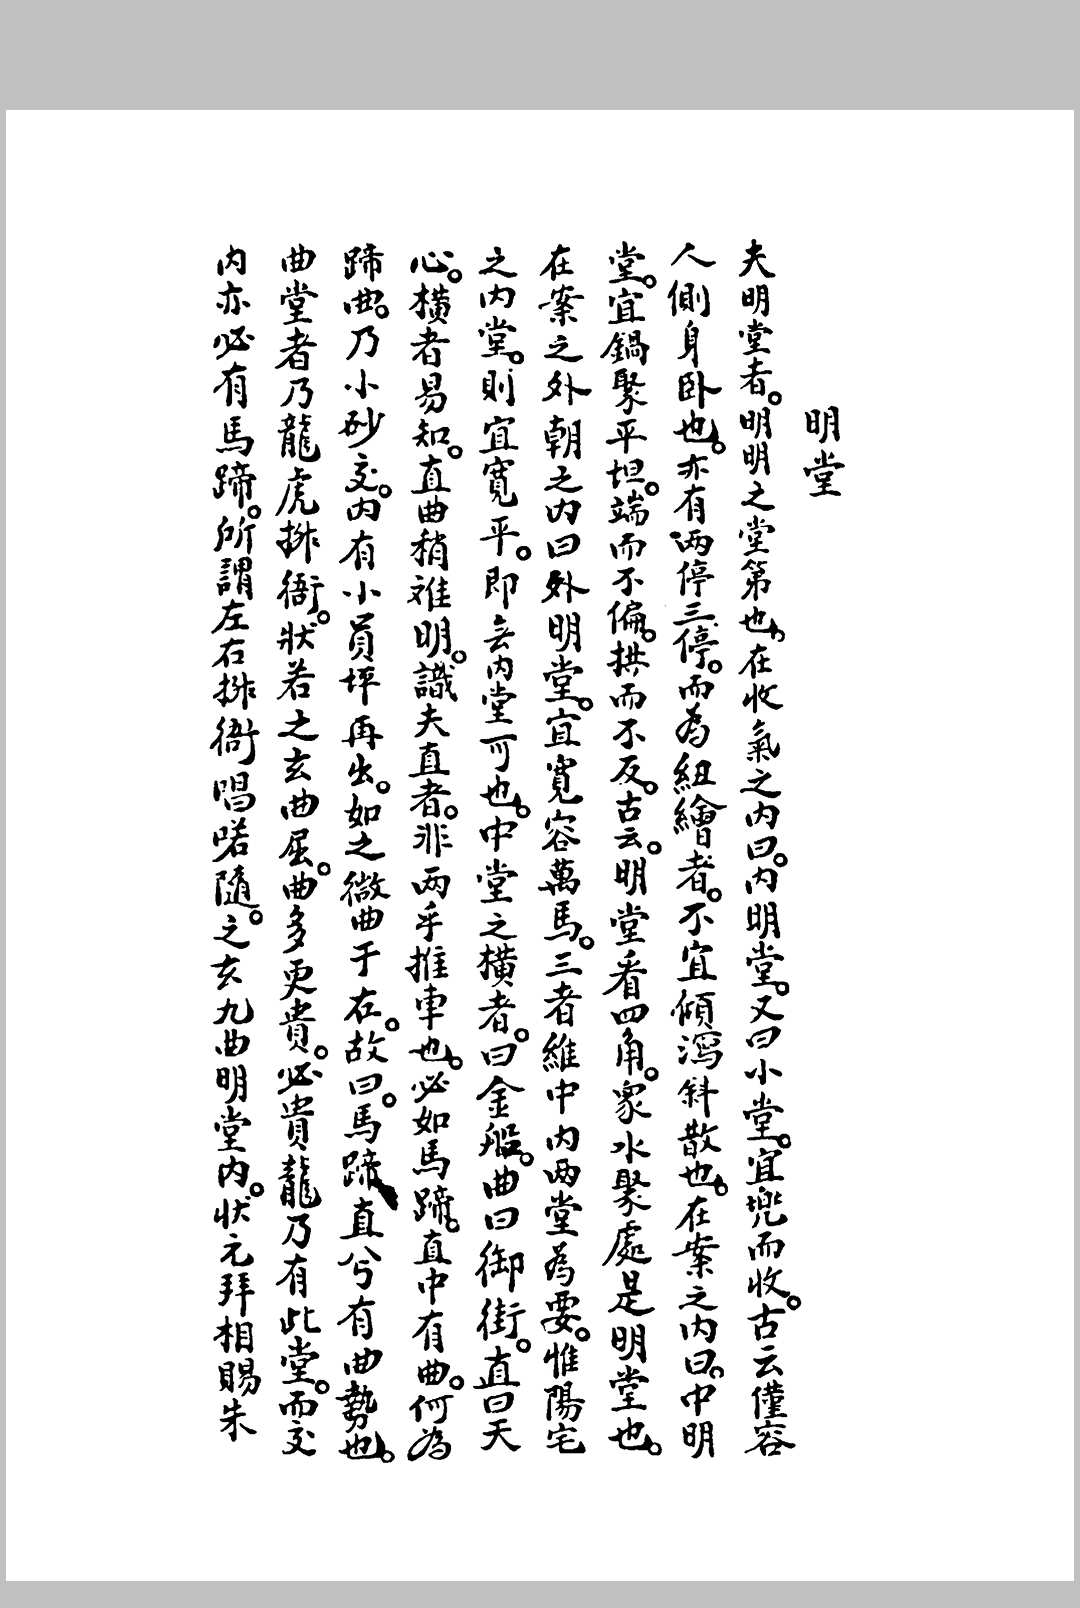 明堂
夫明堂者。明明之堂第也。在收氣之内曰。内明堂。又曰小堂。宜兜而收。古云僅容
人側身卧也。亦有两停三停。而為紐繪者。不宜傾瀉斜散也。在案之内曰。中明
堂。宜鍋聚平坦。端而不偏。拱而不反。古云。明堂看四角。衆水聚處是明堂也。
在案之外朝之内曰外明堂。宜寬容萬馬。三者維中内两堂為要。惟陽宅
之内堂。則宜寬平。即無内堂可也。中堂之橫者。曰金船。曲曰御街。直曰天
心。橫者易知。直曲稍难明。識夫直者。非两手推車也。必如馬蹄。直中有曲。何為
蹄曲。乃小砂交。内有小員坪再出。如之微曲于右。故曰。馬蹄直兮有曲勢也。
曲堂者乃龍虎排衙。狀若之玄曲屈。曲多更貴。必貴龍乃有此堂。而交
内亦必有馬蹄。所謂左右排衙唱喏隨。之玄九曲明堂内。状元拜相賜朱